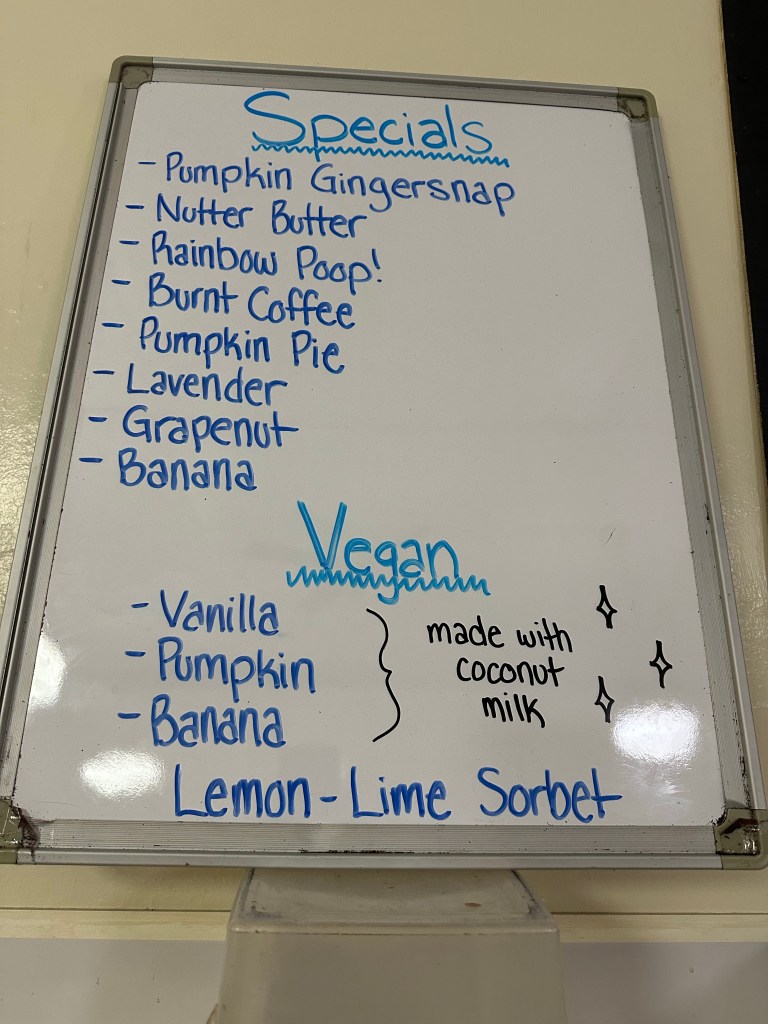 Specials
- Pumpkin Gingersnap
- Nutter Butter
- Rainbow Poop!
- Burnt Coffee
- Pumpkin Pie
- Lavender
- Grapenut
- Banana
Vegan
- Vanilla
- Pumpkin
- Banana
made with
coconut
milk
Lemon-Lime Sorbet